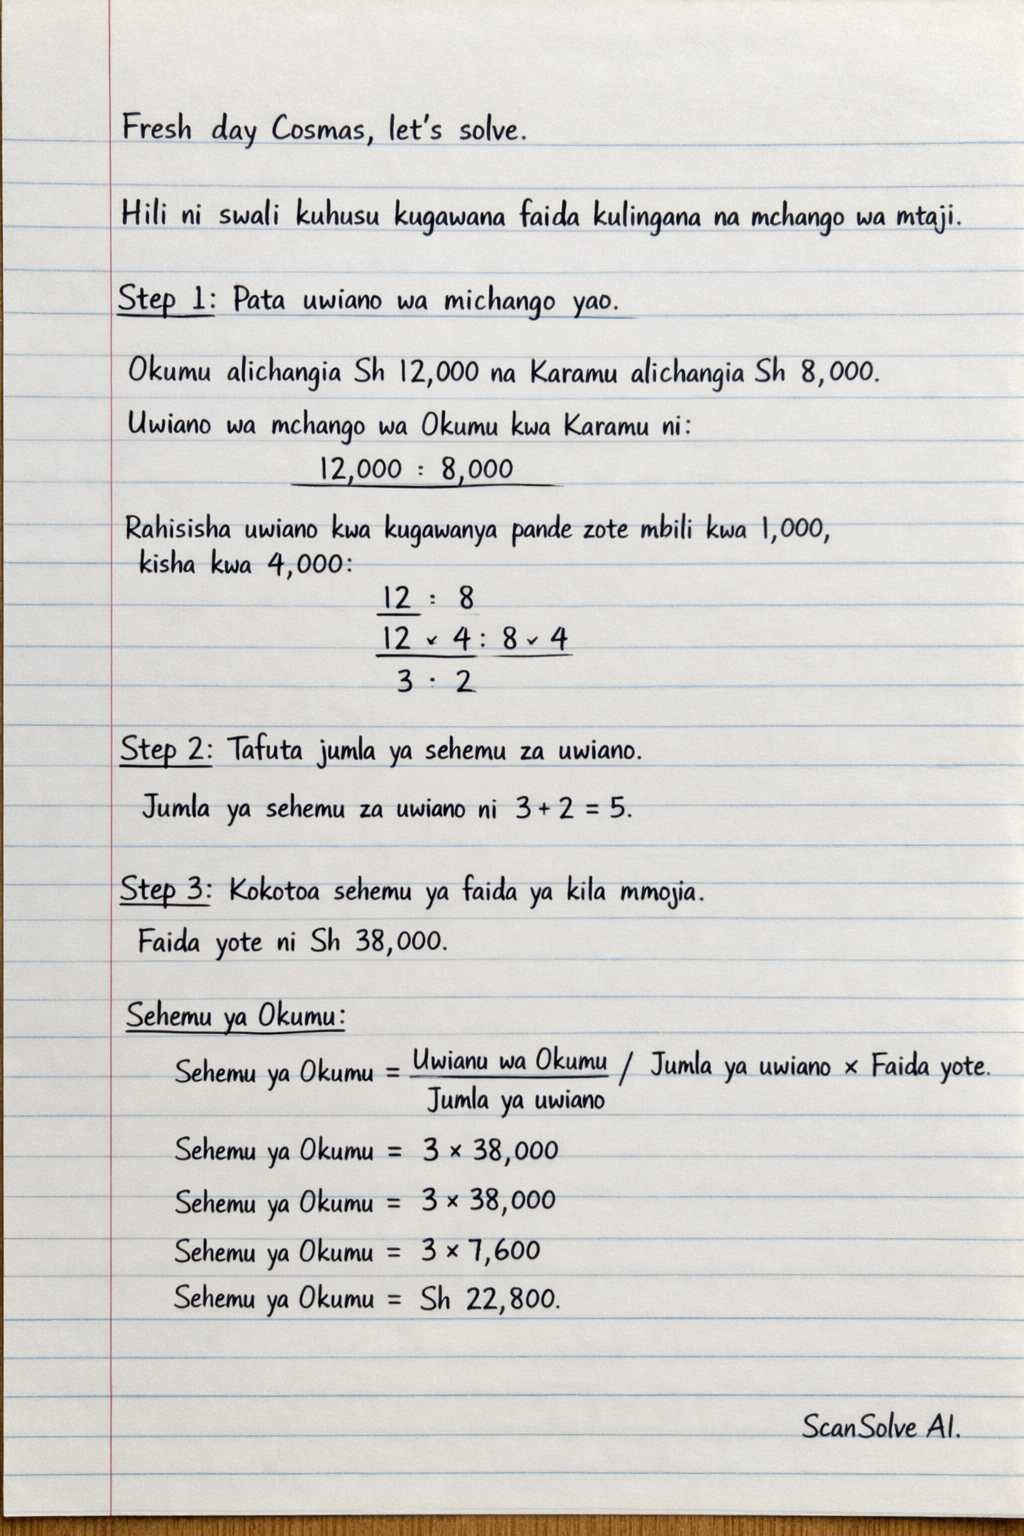 Fresh day Cosmas, let's solve.
Hili ni swali kuhusu kugawana faida kulingana na mchango wa mtaji.
Step 1: Pata uwiano wa michango yao.
Okumu alichangia Sh 12,000 na Karamu alichangia Sh 8,000.
Uwiano wa mchango wa Okumu kwa Karamu ni:
12,000 : 8,000
Rahisisha uwiano kwa kugawanya pande zote mbili kwa 1,000,
kisha kwa 4,000:
12 : 8
12 ˅ 4 : 8 ˅ 4
3 : 2
Step 2: Tafuta jumla ya sehemu za uwiano.
Jumla ya sehemu za uwiano ni 3 + 2 = 5.
Step 3: Kokotoa sehemu ya faida ya kila mmojia.
Faida yote ni Sh 38,000.
Sehemu ya Okumu:
Sehemu ya Okumu = Uwianu wa Okumu / Jumla ya uwiano × Faida yote.
Jumla ya uwiano
Sehemu ya Okumu = 3 × 38,000
Sehemu ya Okumu = 3 × 38,000
Sehemu ya Okumu = 3 × 7,600
Sehemu ya Okumu = Sh 22,800.
ScanSolve AI.